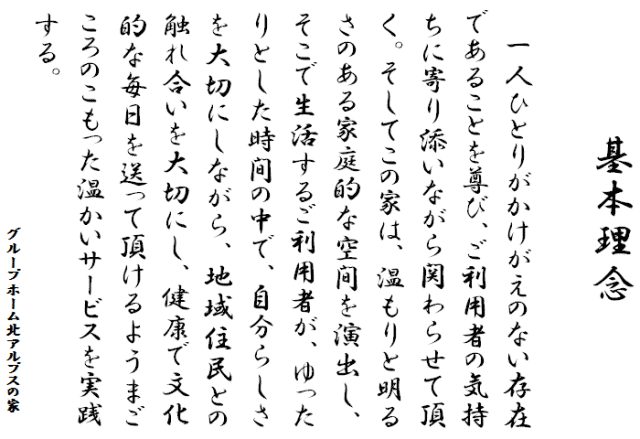 基本理念
一人ひとりがかけがえのない存在
であることを尊び、ご利用者の気持
ちに寄り添いながら関わらせて頂
く。そしてこの家は、温もりと明る
さのある家庭的な空間を演出し、
そこで生活するご利用者が、ゆった
りとした時間の中で、自分らしさ
を大切にしながら、地域住民との
触れ合いを大切にし、健康で文化
的な毎日を送って頂けるようまご
ころのこもった温かいサービスを実践
する。
グループホーム北アルプスの家